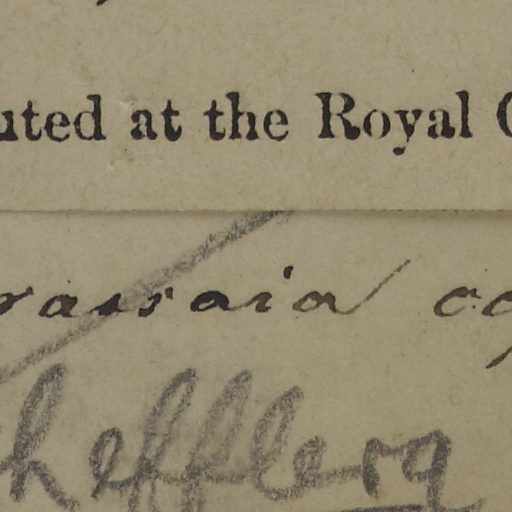 uted at the Royal
rassaia
hefflera